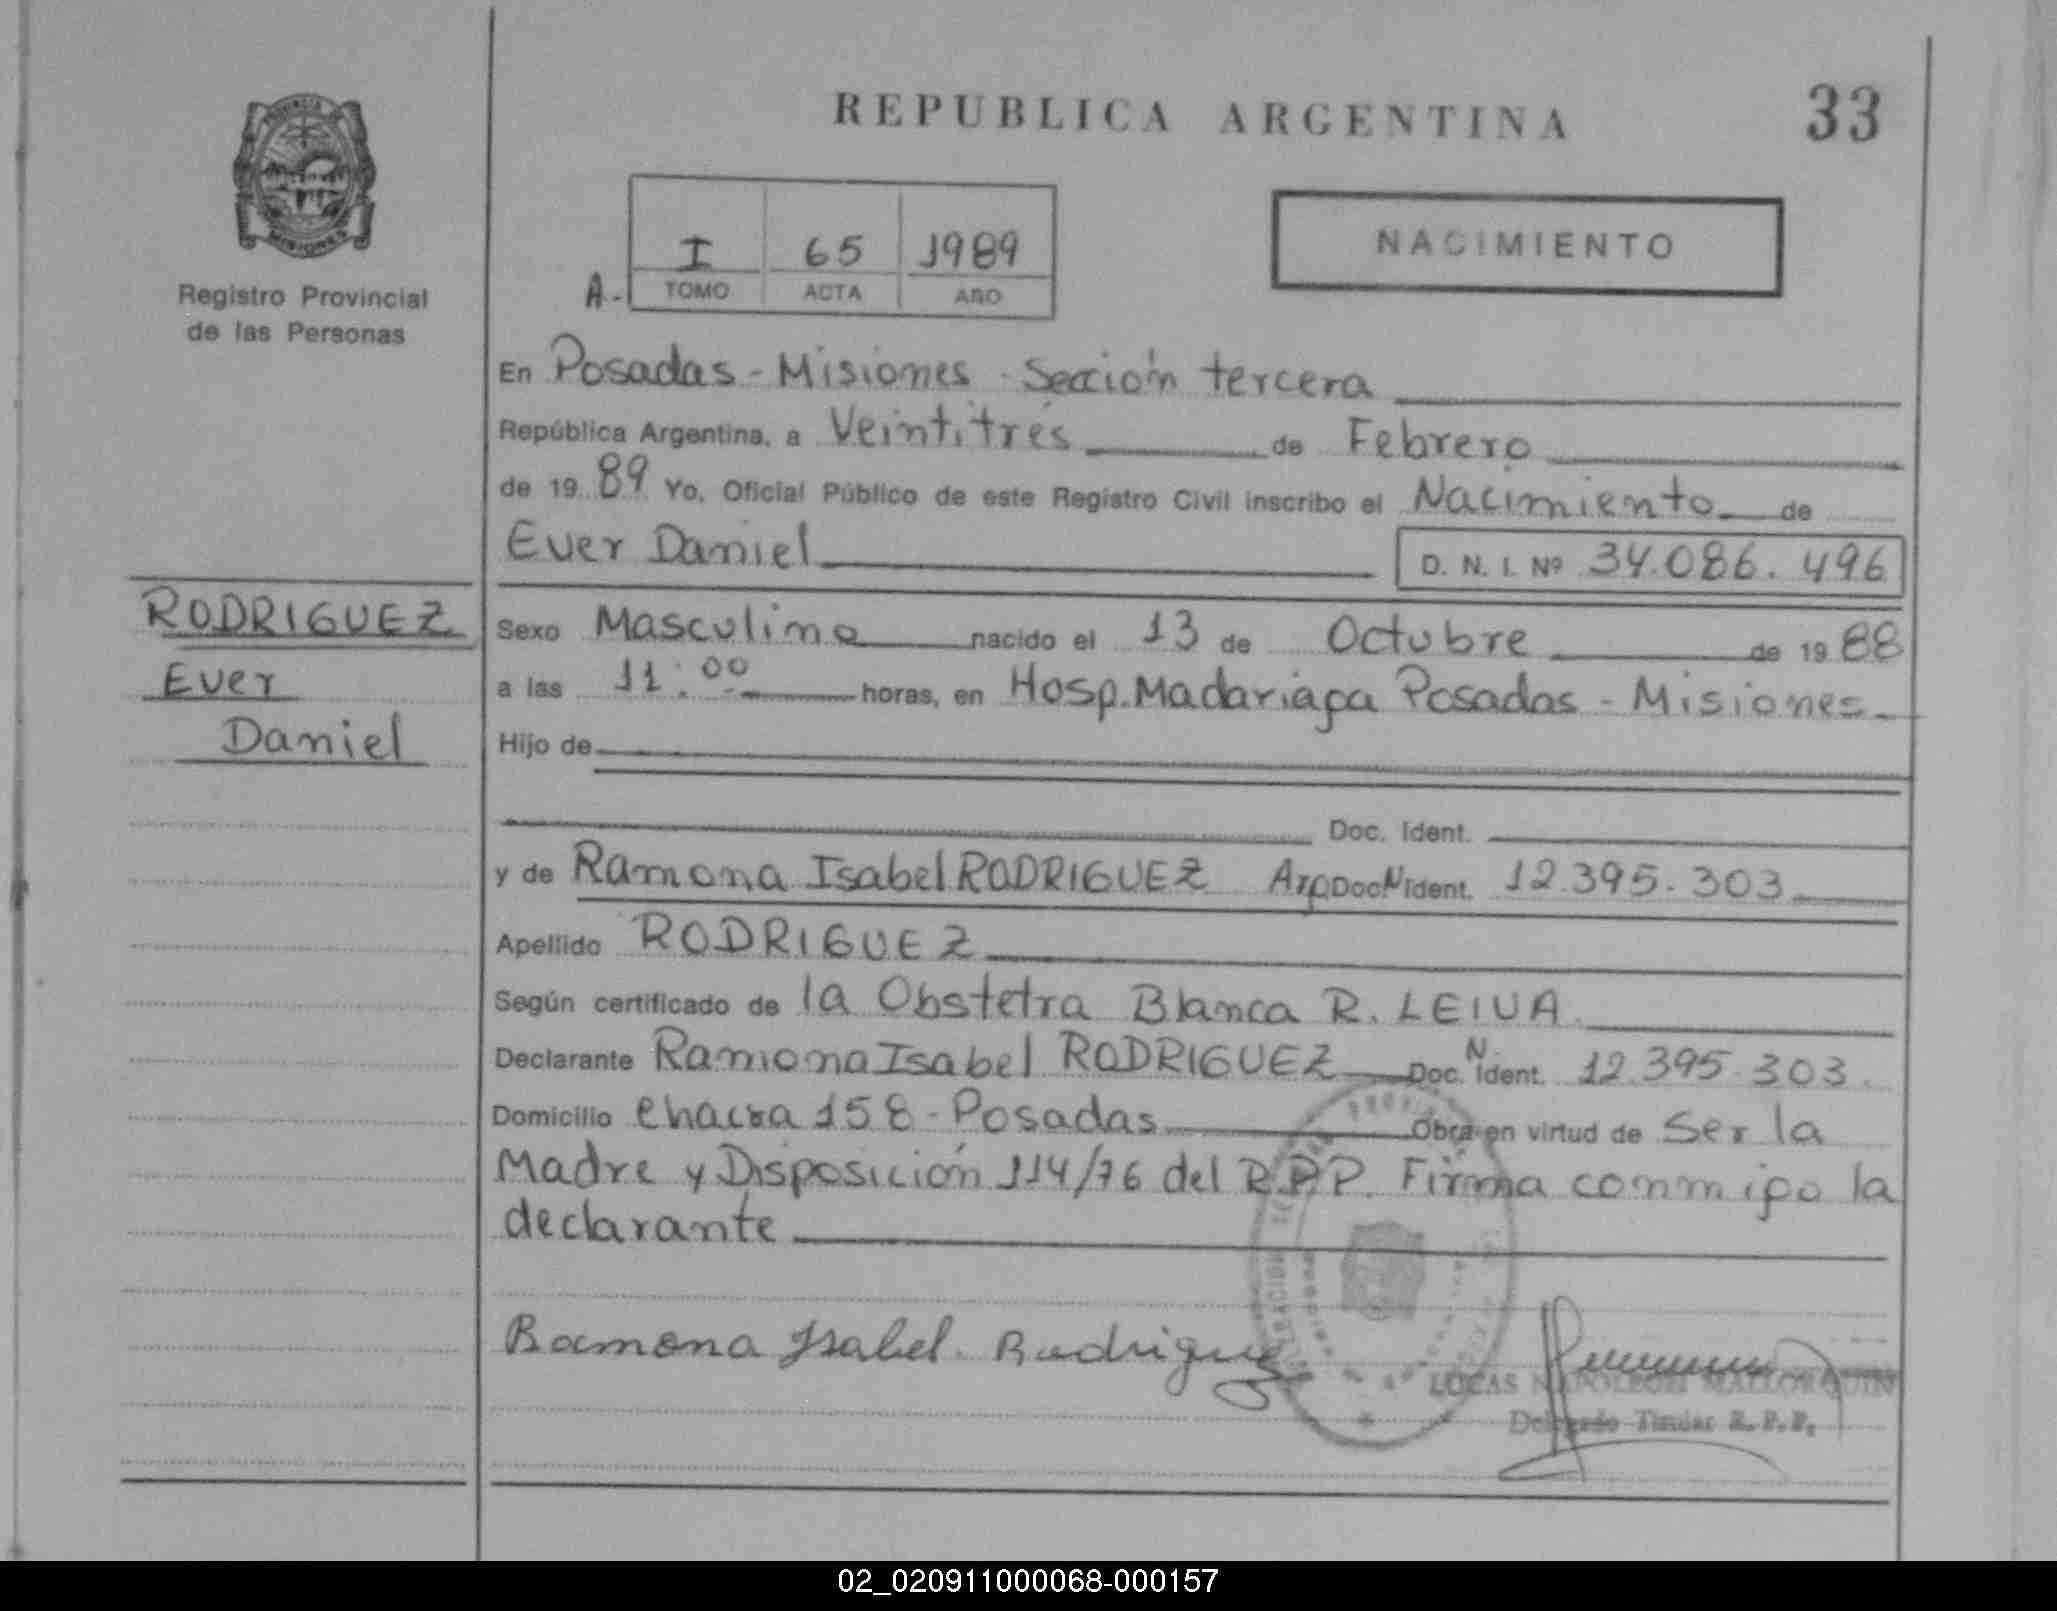 REPUBLICA ARGENTINA
33
PROVINCIA
MISIONES
Registro Provincial
de las Personas
A- I 65 1989
TOMO ACTA AÑO
NACIMIENTO
En Posadas - Misiones - Sección tercera
República Argentina, a Veintitrés de Febrero
de 1989 Yo, Oficial Público de este Registro Civil inscribo el Nacimiento de
Ever Daniel D. N. I. Nº 34.086.496
RODRIGUEZ
Ever
Daniel
Sexo Masculino nacido el 13 de Octubre de 1988
a las 11:00 horas, en Hosp. Madariaga Posadas - Misiones
Hijo de
Doc. Ident.
y de Ramona Isabel RODRIGUEZ Arg. Doc. N Ident. 12.395.303
Apellido RODRIGUEZ
Según certificado de la Obstetra Blanca R. LEIVA
Declarante Ramona Isabel RODRIGUEZ Doc. N Ident. 12.395.303
Domicilio Chacra 158 - Posadas Obra en virtud de Ser la
Madre y Disposición 114/76 del R.P.P. Firma conmigo la
declarante
Ramona Isabel Rodriguez
LUCAS NAPOLEON MALLORQUIN
Delegado Titular R. P. P.
02_020911000068-000157